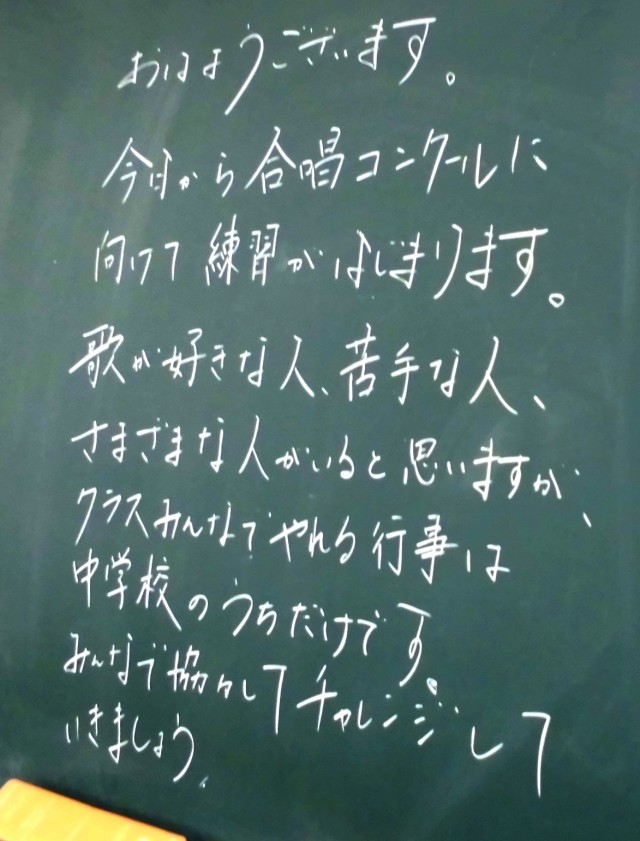 おはようございます。
今日から合唱コンクールに
向けて練習がはじまります。
歌が好きな人、苦手な人、
さまざまな人がいると思いますが、
クラスみんなでやれる行事は
中学校のうちだけです。
みんなで協力してチャレンジして
いきましょう。